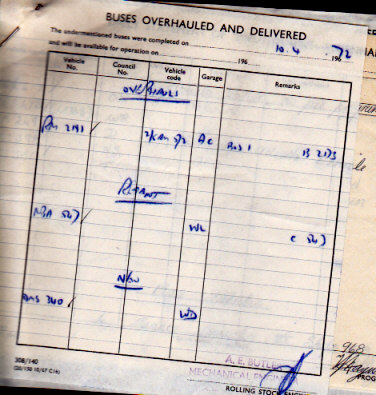 BUSES OVERHAULED AND DELIVERED
The undermentioned buses were completed on 10.4 1967 72
and will be available for operation on 196
Vehicle No. Council No. Vehicle code Garage Remarks
OVERHAUL
RM 2191 AC B 2173
REPAINT
WL C 547
NEW
DMS 340 WD
308/140
A. E. BUTLER
MECHANICAL ENGINEER
ROLLING STOCK ENGI
968
PROG